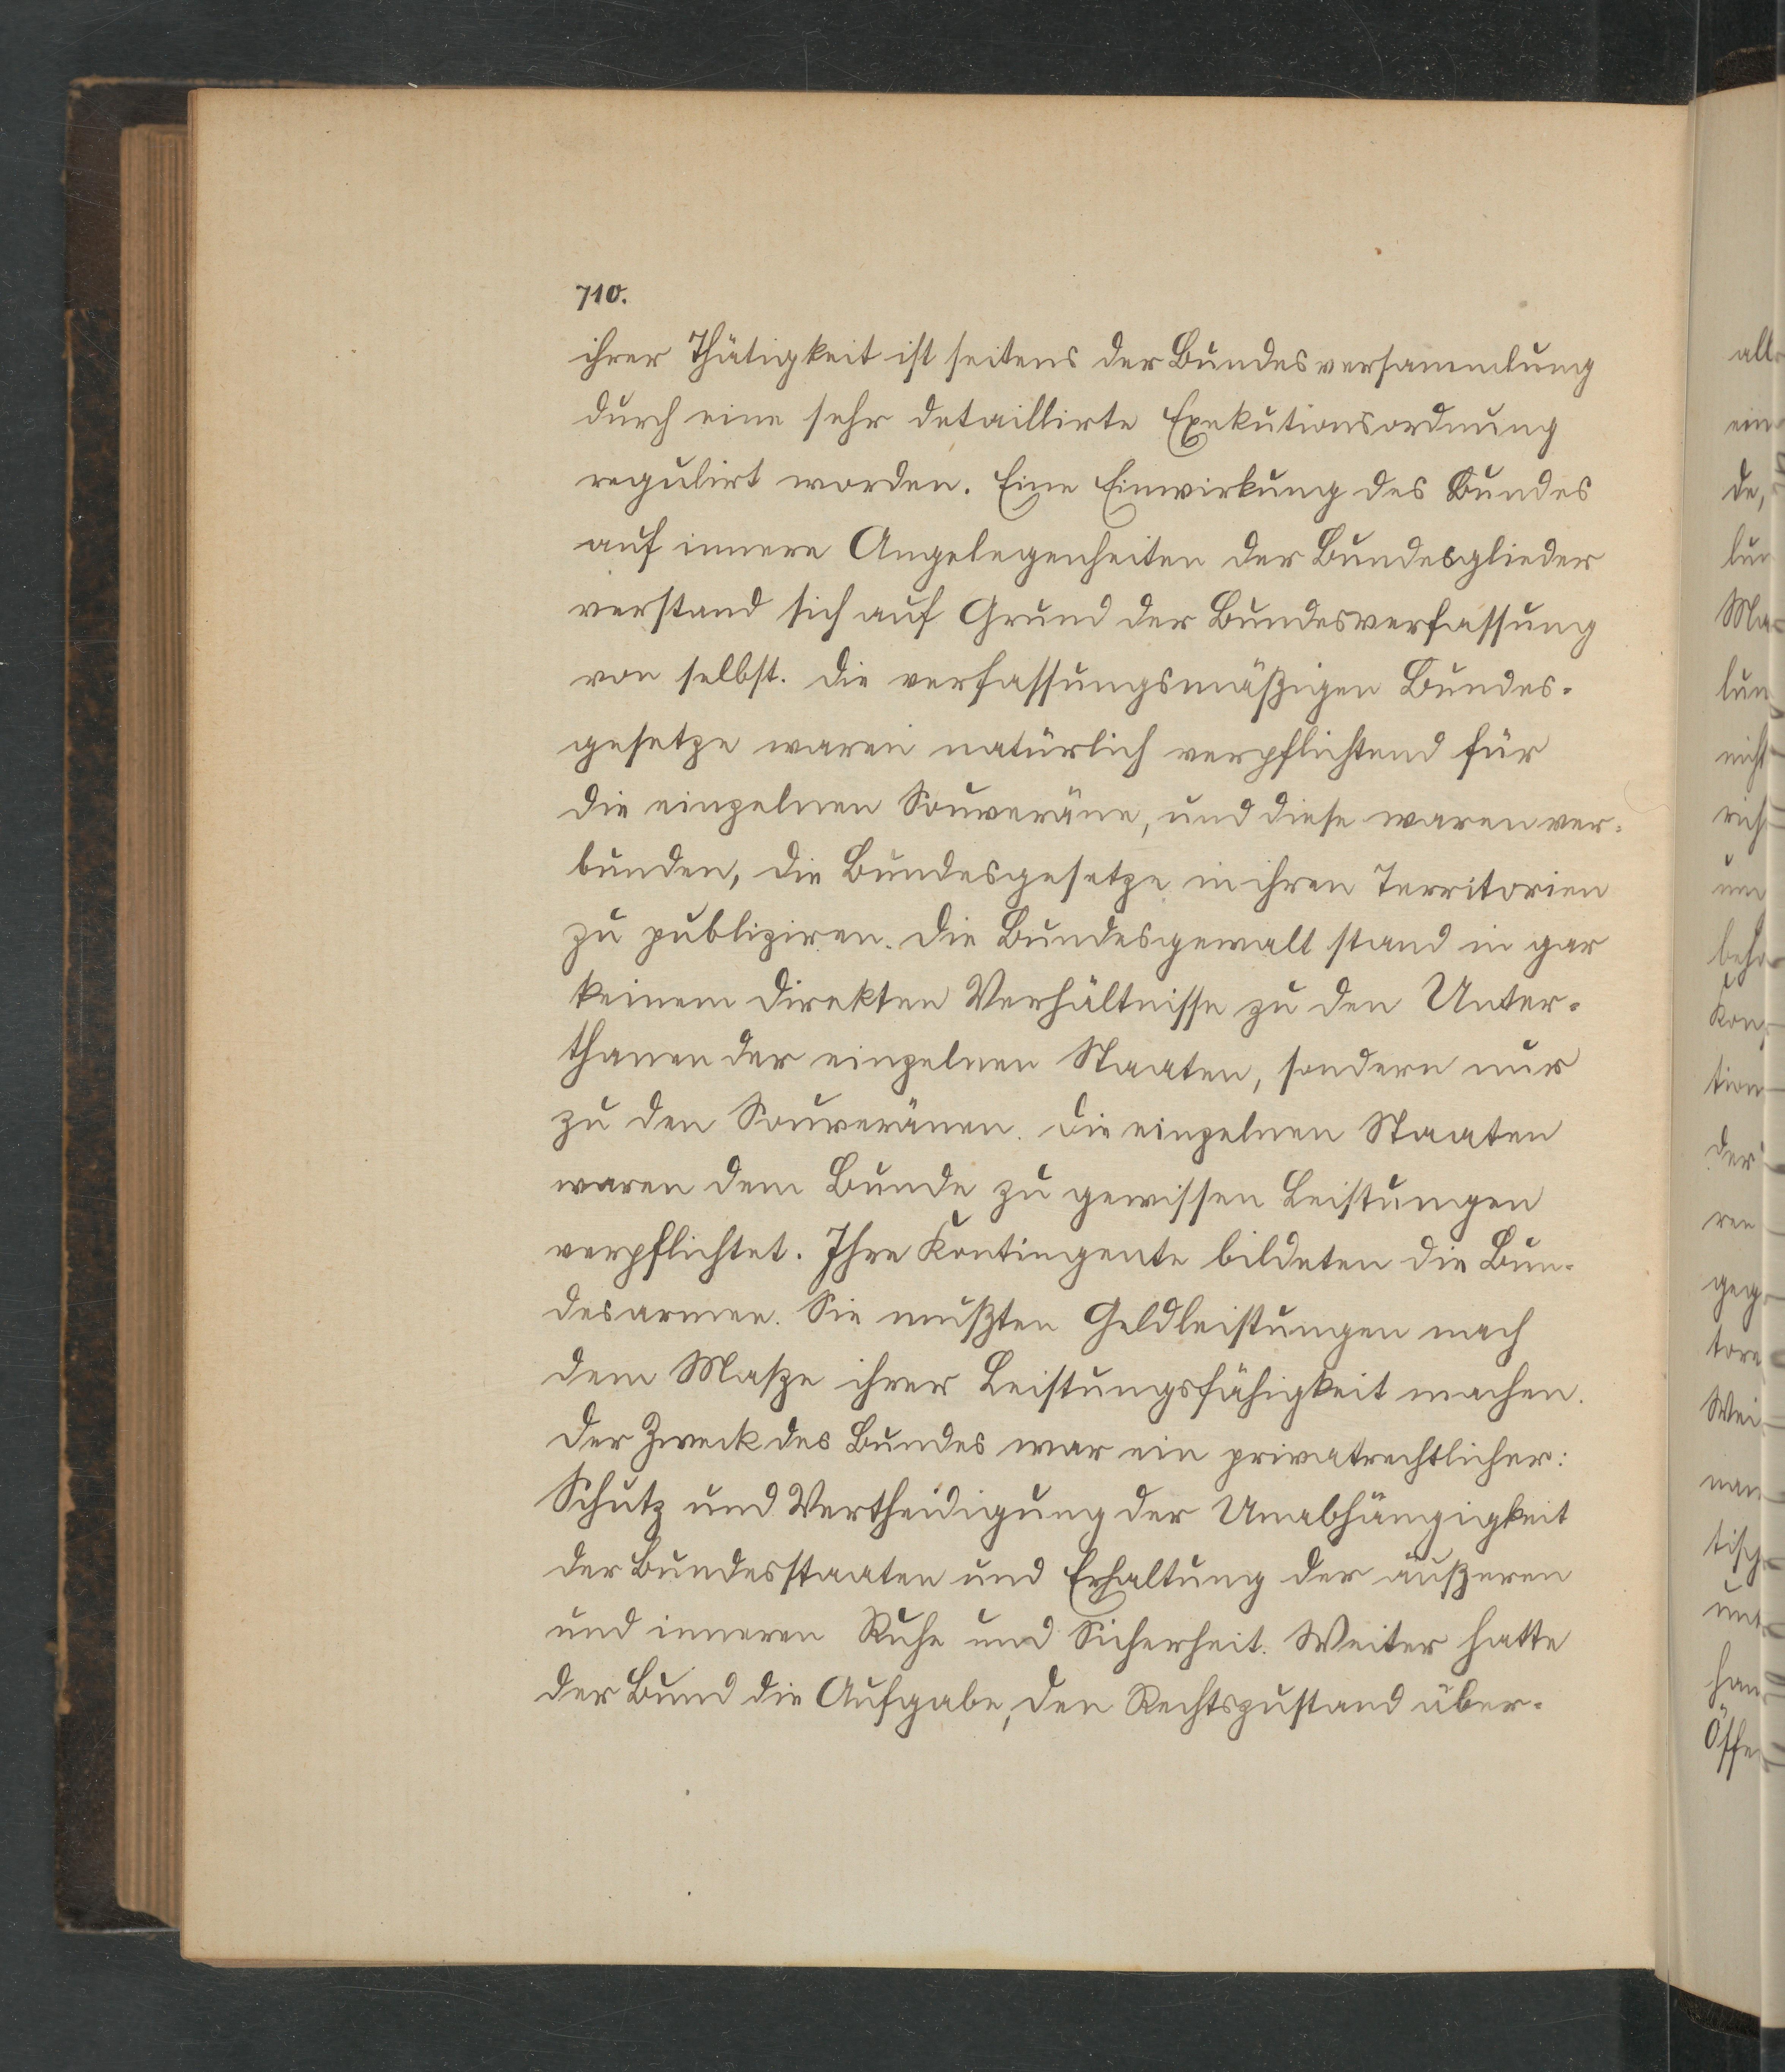 710.
ihrer Thätigkeit ist seitens der Bundesversammlung
durch eine sehr detaillirte Exekutionsordnung
regulirt worden. Eine Einwirkung des Bundes
auf innere Angelegenheiten der Bundesglieder
verstand sich auf Grund der Bundesverfassung
von selbst. Die verfassungsmäßigen Bundes-
gesetze waren natürlich verpflichtend für
die einzelnen Souveräne, und diese waren ver-
bunden, die Bundesgesetze in ihren Territorien
zu publiziren. Die Bundesgewalt stand in gar
keinem direkten Verhältnisse zu den Unter-
thanen der einzelnen Staaten, sondern nur
zu den Souveränen. Die einzelnen Staaten
waren dem Bunde zu gewissen Leistungen
verpflichtet. Ihre Kontingente bildeten die Bun-
desarmee. Sie mußten Geldleistungen nach
dem Maße ihrer Leistungsfähigkeit machen.
Der Zweck des Bundes war ein privatrechtlicher:
Schutz und Vertheidigung der Unabhängigkeit
der Bundesstaaten und Erhaltung der äußeren
und inneren Ruhe und Sicherheit. Weiter hatte
der Bund die Aufgabe, den Rechtszustand über-